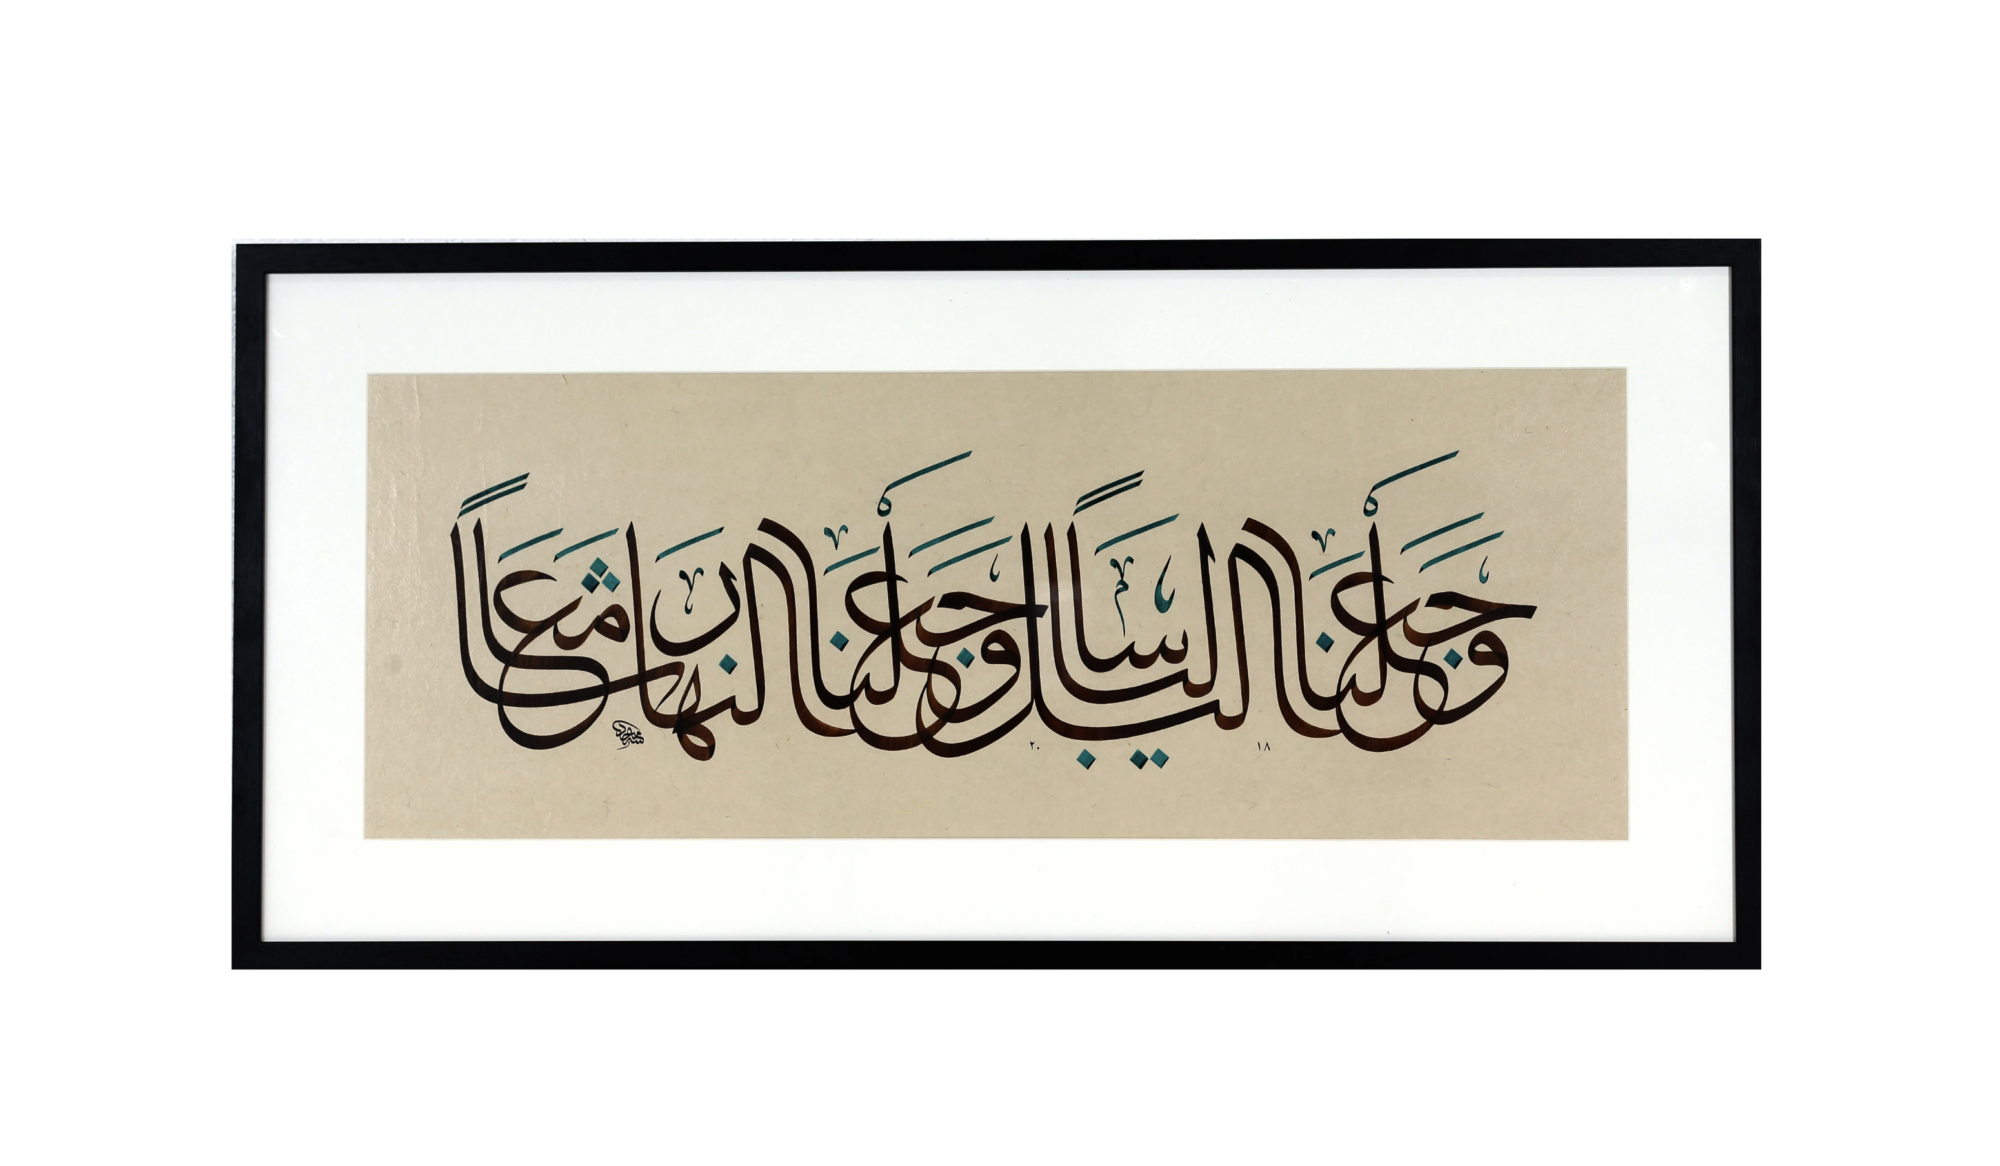 وَجَعَلْنَا الَّيْلَ لِبَاسًا وَجَعَلْنَا النَّهَارَ مَعَاشًا
١٨ ٢٠